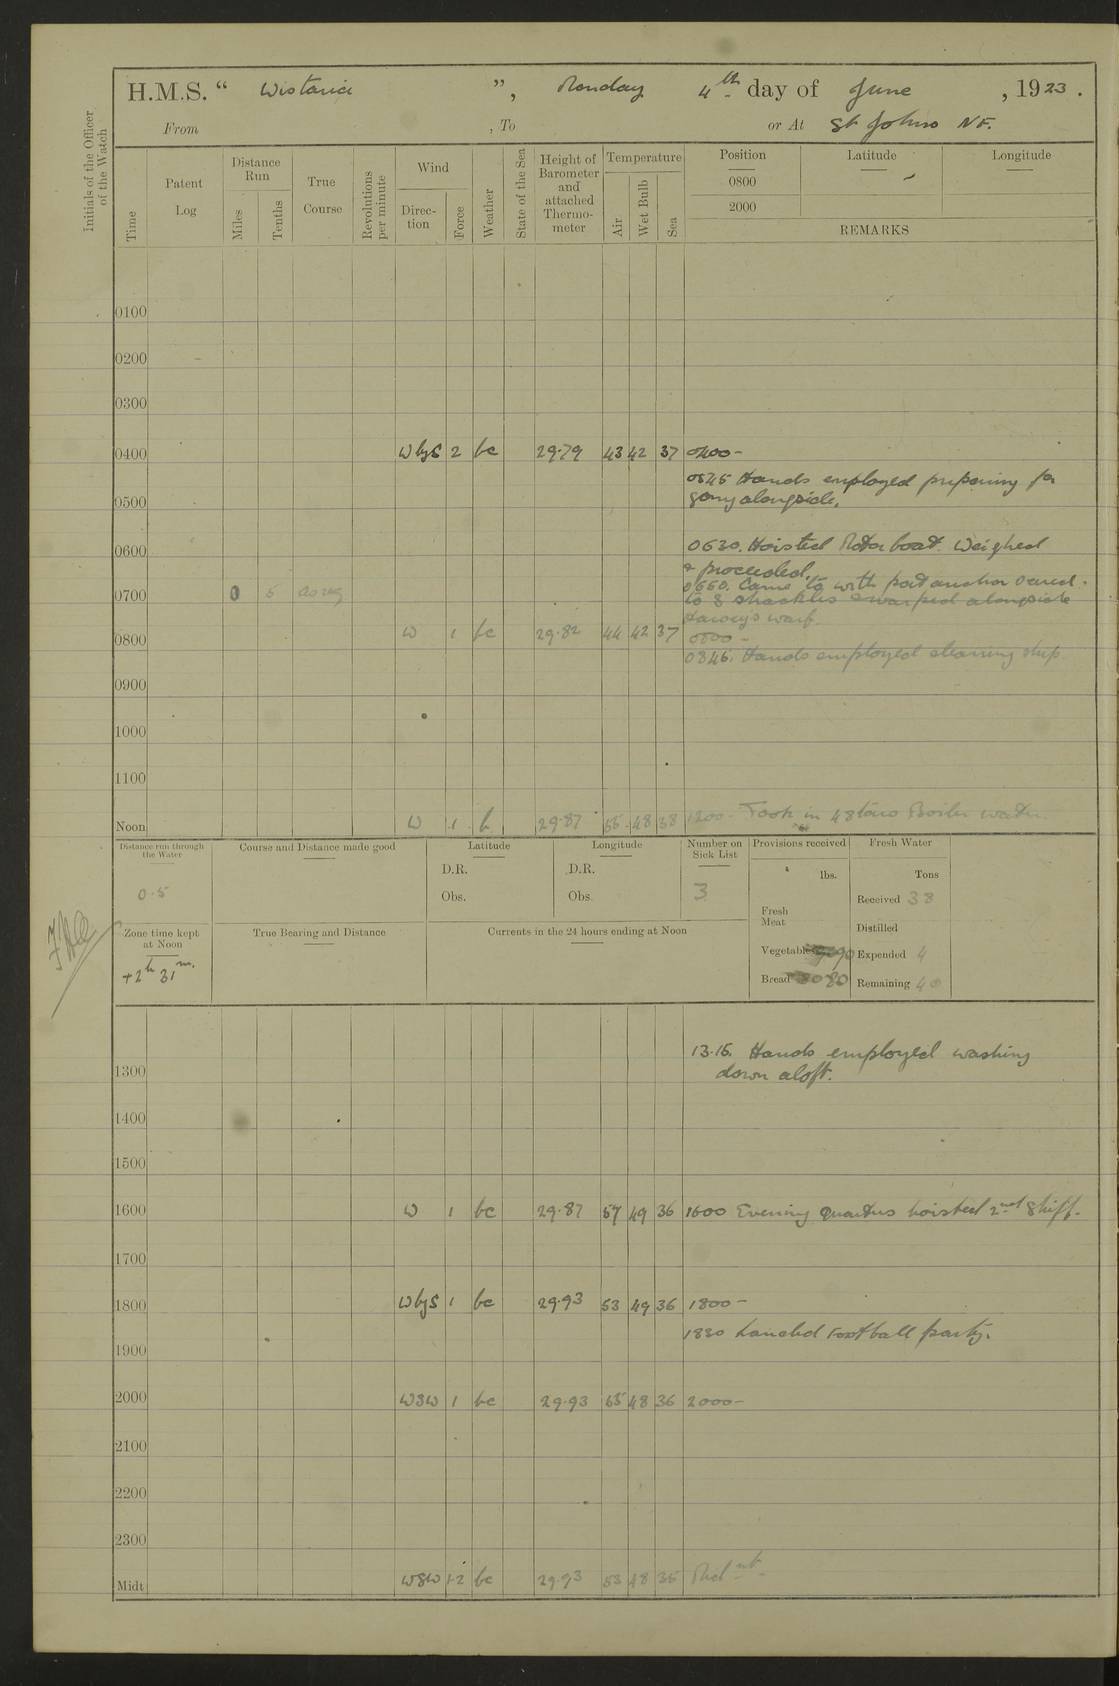 H.M.S. “ Wistaria ”, Monday 4th day of June , 1923 .
From , To or At St Johns NF.
Initials of the Officer of the Watch
Time
Patent Log
Distance Run
Miles
Tenths
True Course
Revolutions per minute
Wind
Direction
Force
Weather
State of the Sea
Height of Barometer and attached Thermometer
Temperature
Air
Wet Bulb
Sea
Position Latitude Longitude
0800
2000
REMARKS
0100
0200
0300
0400 WbyS 2 bc 29.79 43 42 37 0400 -
0545 Hands employed preparing for
going alongside.
0500
0630. Hoisted Motor boat. Weighed
0600
& proceeded.
0650. Came to with port anchor veered
0700 0 5 As req
to 3 shackles & warped alongside
Harvey's warf.
0800 W 1 bc 29.82 44 42 37 0800 -
0845. Hands employed cleaning ship.
0900
1000
1100
Noon W 1 b 29.87 55 48 38 1200 - Took in 48 tons Boiler water.
Distance run through the Water
0.5
Course and Distance made good
Latitude
D.R.
Obs.
Longitude
D.R.
Obs.
Number on Sick List
3
Provisions received
lbs.
Fresh Meat
Vegetables 90
Bread 80
Fresh Water
Tons
Received 38
Distilled
Expended 4
Remaining 40
Zone time kept at Noon
+2h 31m.
True Bearing and Distance
Currents in the 24 hours ending at Noon
13.15. Hands employed washing
down aloft.
1300
1400
1500
1600 W 1 bc 29.87 57 49 36 1600 Evening quarters hoisted 2nd Skiff.
1700
1800 WbyS 1 bc 29.93 53 49 36 1800 -
1830 Landed Football party.
1900
2000 WSW 1 bc 29.93 55 48 36 2000 -
2100
2200
2300
Midt WSW 1-2 bc 29.93 53 48 35 Midnt -